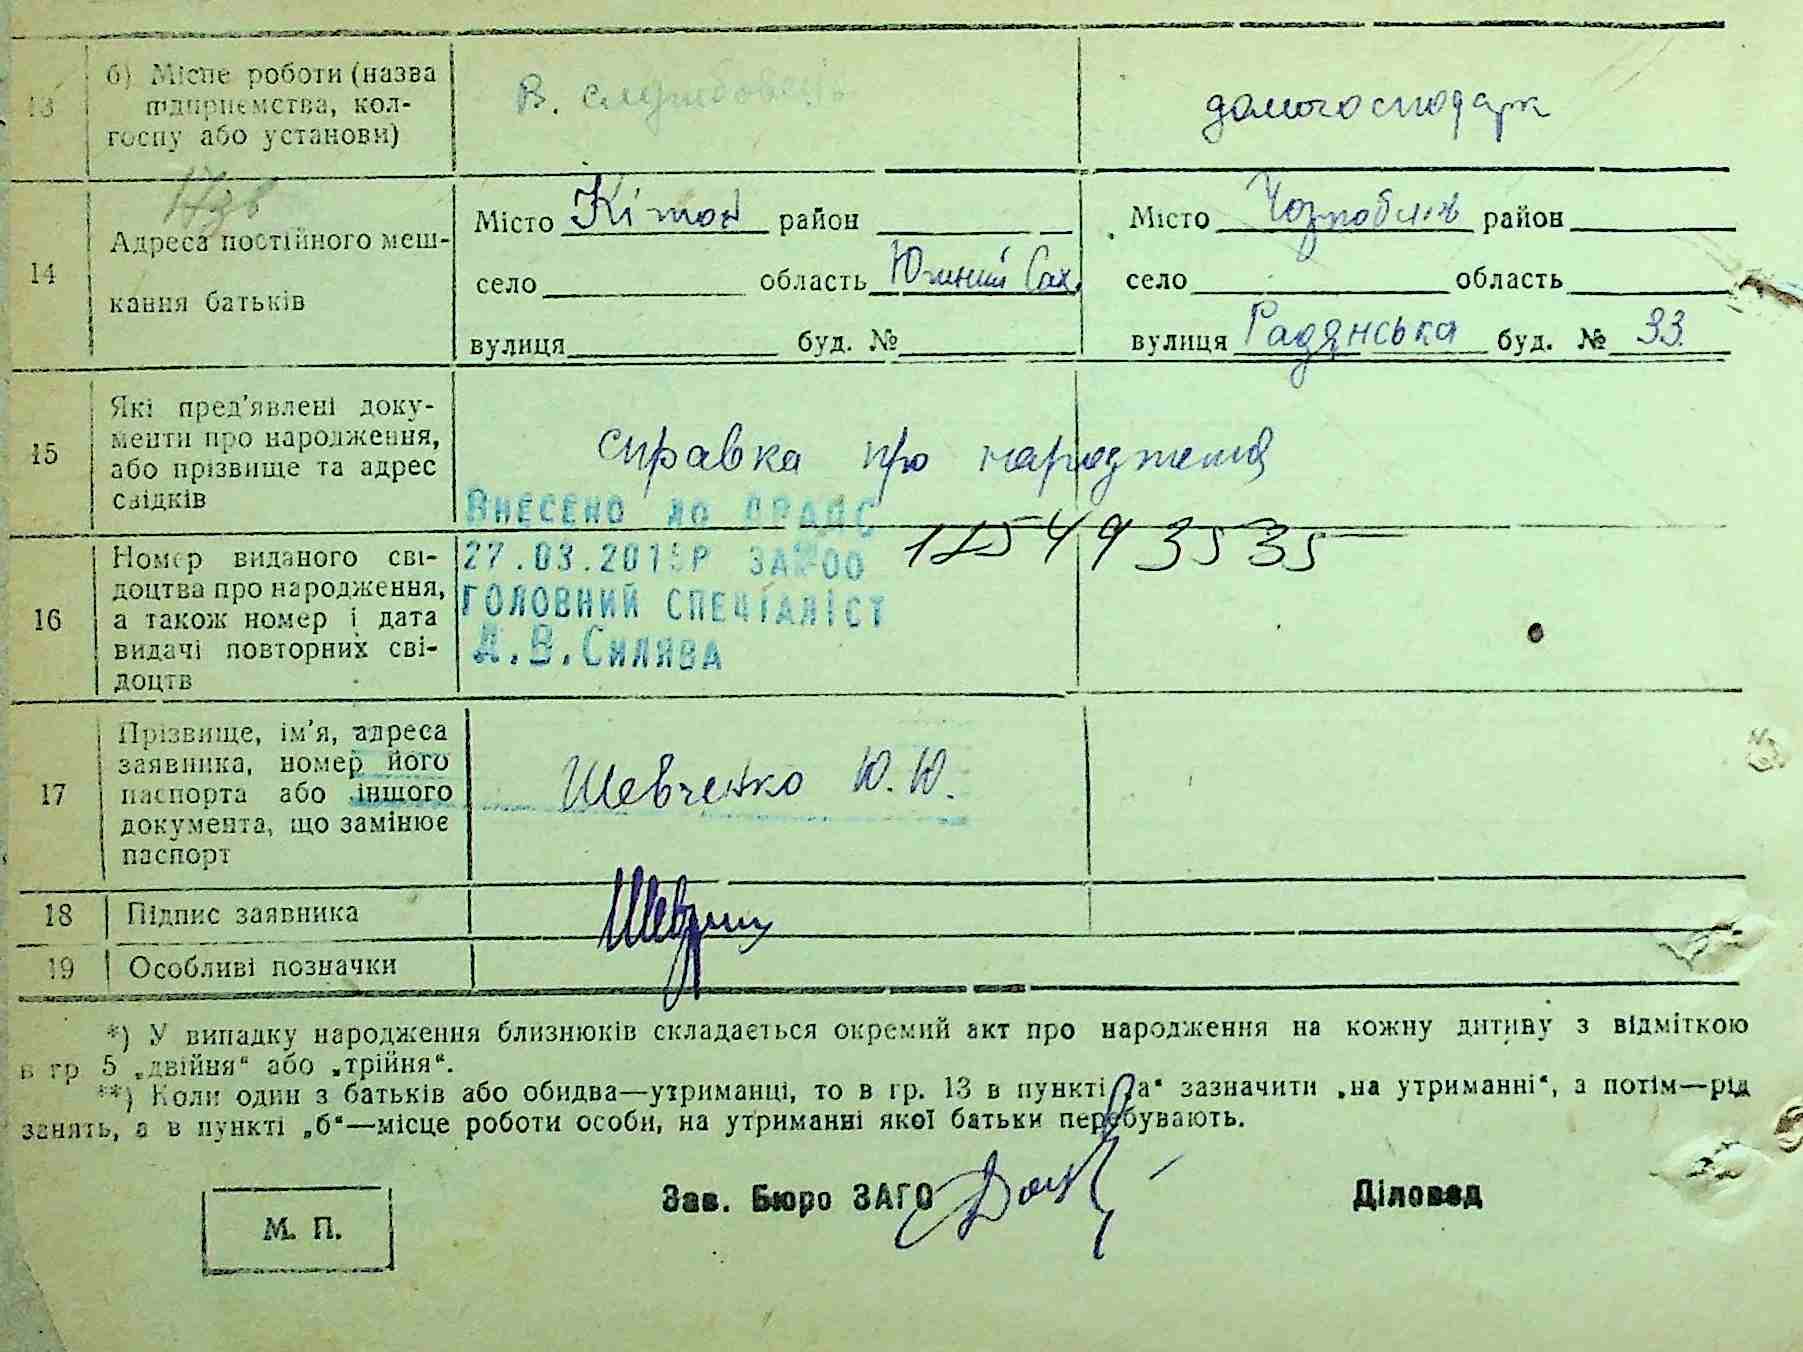 13
б) Місце роботи (назва
підприємства, кол-
госпу або установи)
В. службовець
домогосподарк
14
Адреса постійного меш-
кання батьків
Місто Кітой район
село область Южний Сах.
вулиця буд. №
Місто Чорнобиль район
село область
вулиця Радянська буд. № 33
15
Які пред'явлені доку-
менти про народження,
або прізвище та адрес
свідків
справка про народження
16
Номер виданого сві-
доцтва про народження,
а також номер і дата
видачі повторних сві-
доцтв
ВНЕСЕНО ДО ДРАЦС
27.03.2015Р ЗА №00
ГОЛОВНИЙ СПЕЦІАЛІСТ
Д.В.СИЛЯВА
17
Прізвище, ім'я, адреса
заявника, номер його
паспорта або іншого
документа, що замінює
паспорт
Шевченко Ю.Ю.
18
Підпис заявника
19
Особливі позначки
*) У випадку народження близнюків складається окремий акт про народження на кожну дитину з відміткою
в гр 5 „двійня“ або „трійня“.
**) Коли один з батьків або обидва—утриманці, то в гр. 13 в пункті „а“ зазначити „на утриманні“, а потім—рід
занять, а в пункті „б“—місце роботи особи, на утриманні якої батьки перебувають.
М. П.
Зав. Бюро ЗАГС
Діловод